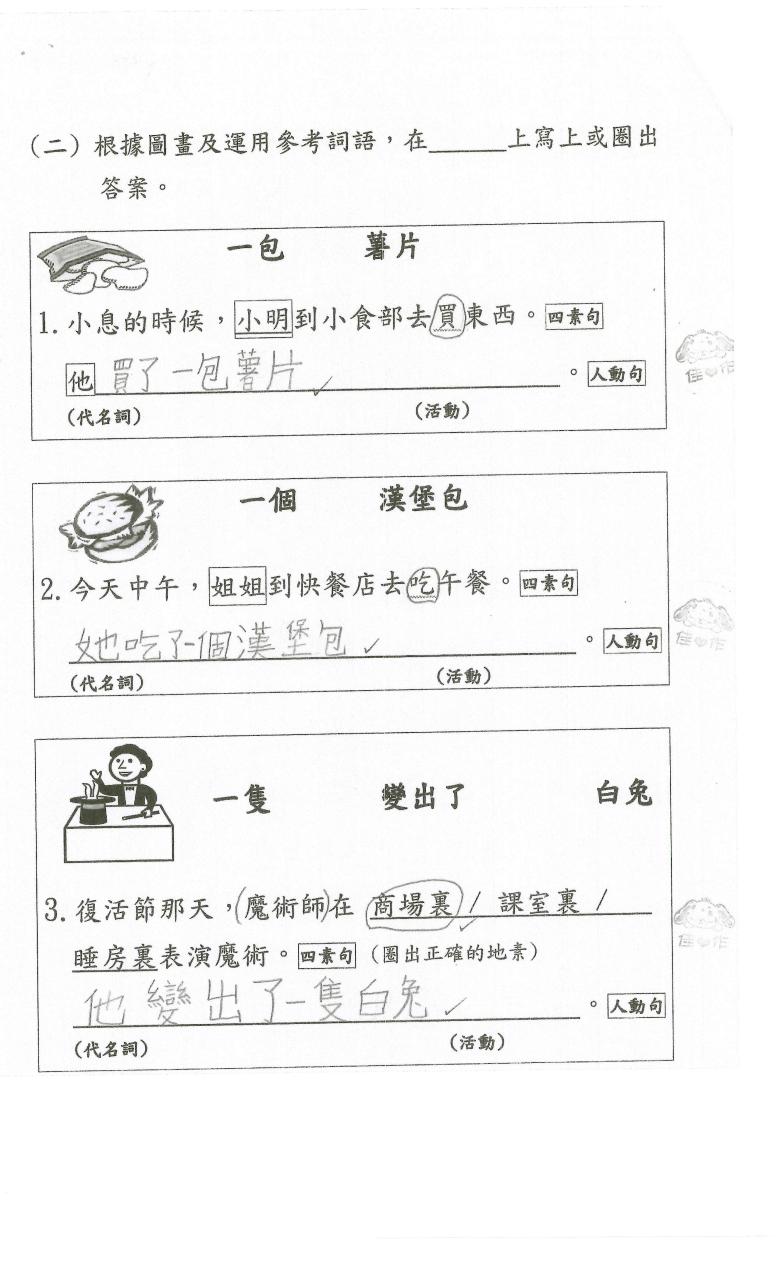 (二) 根據圖畫及運用參考詞語，在______上寫上或圈出
答案。
一包 薯片
1. 小息的時候，小明到小食部去買東西。 四素句
他買了一包薯片✓。 人動句
(代名詞) (活動)
佳♥作
一個 漢堡包
2. 今天中午，姐姐到快餐店去吃午餐。 四素句
她吃了一個漢堡包✓。 人動句
(代名詞) (活動)
佳♥作
一隻 變出了 白兔
3. 復活節那天，(魔術師)在 商場裏 / 課室裏 /
睡房裏表演魔術。 四素句 (圈出正確的地素)
佳♥作
他變出了一隻白兔✓。 人動句
(代名詞) (活動)